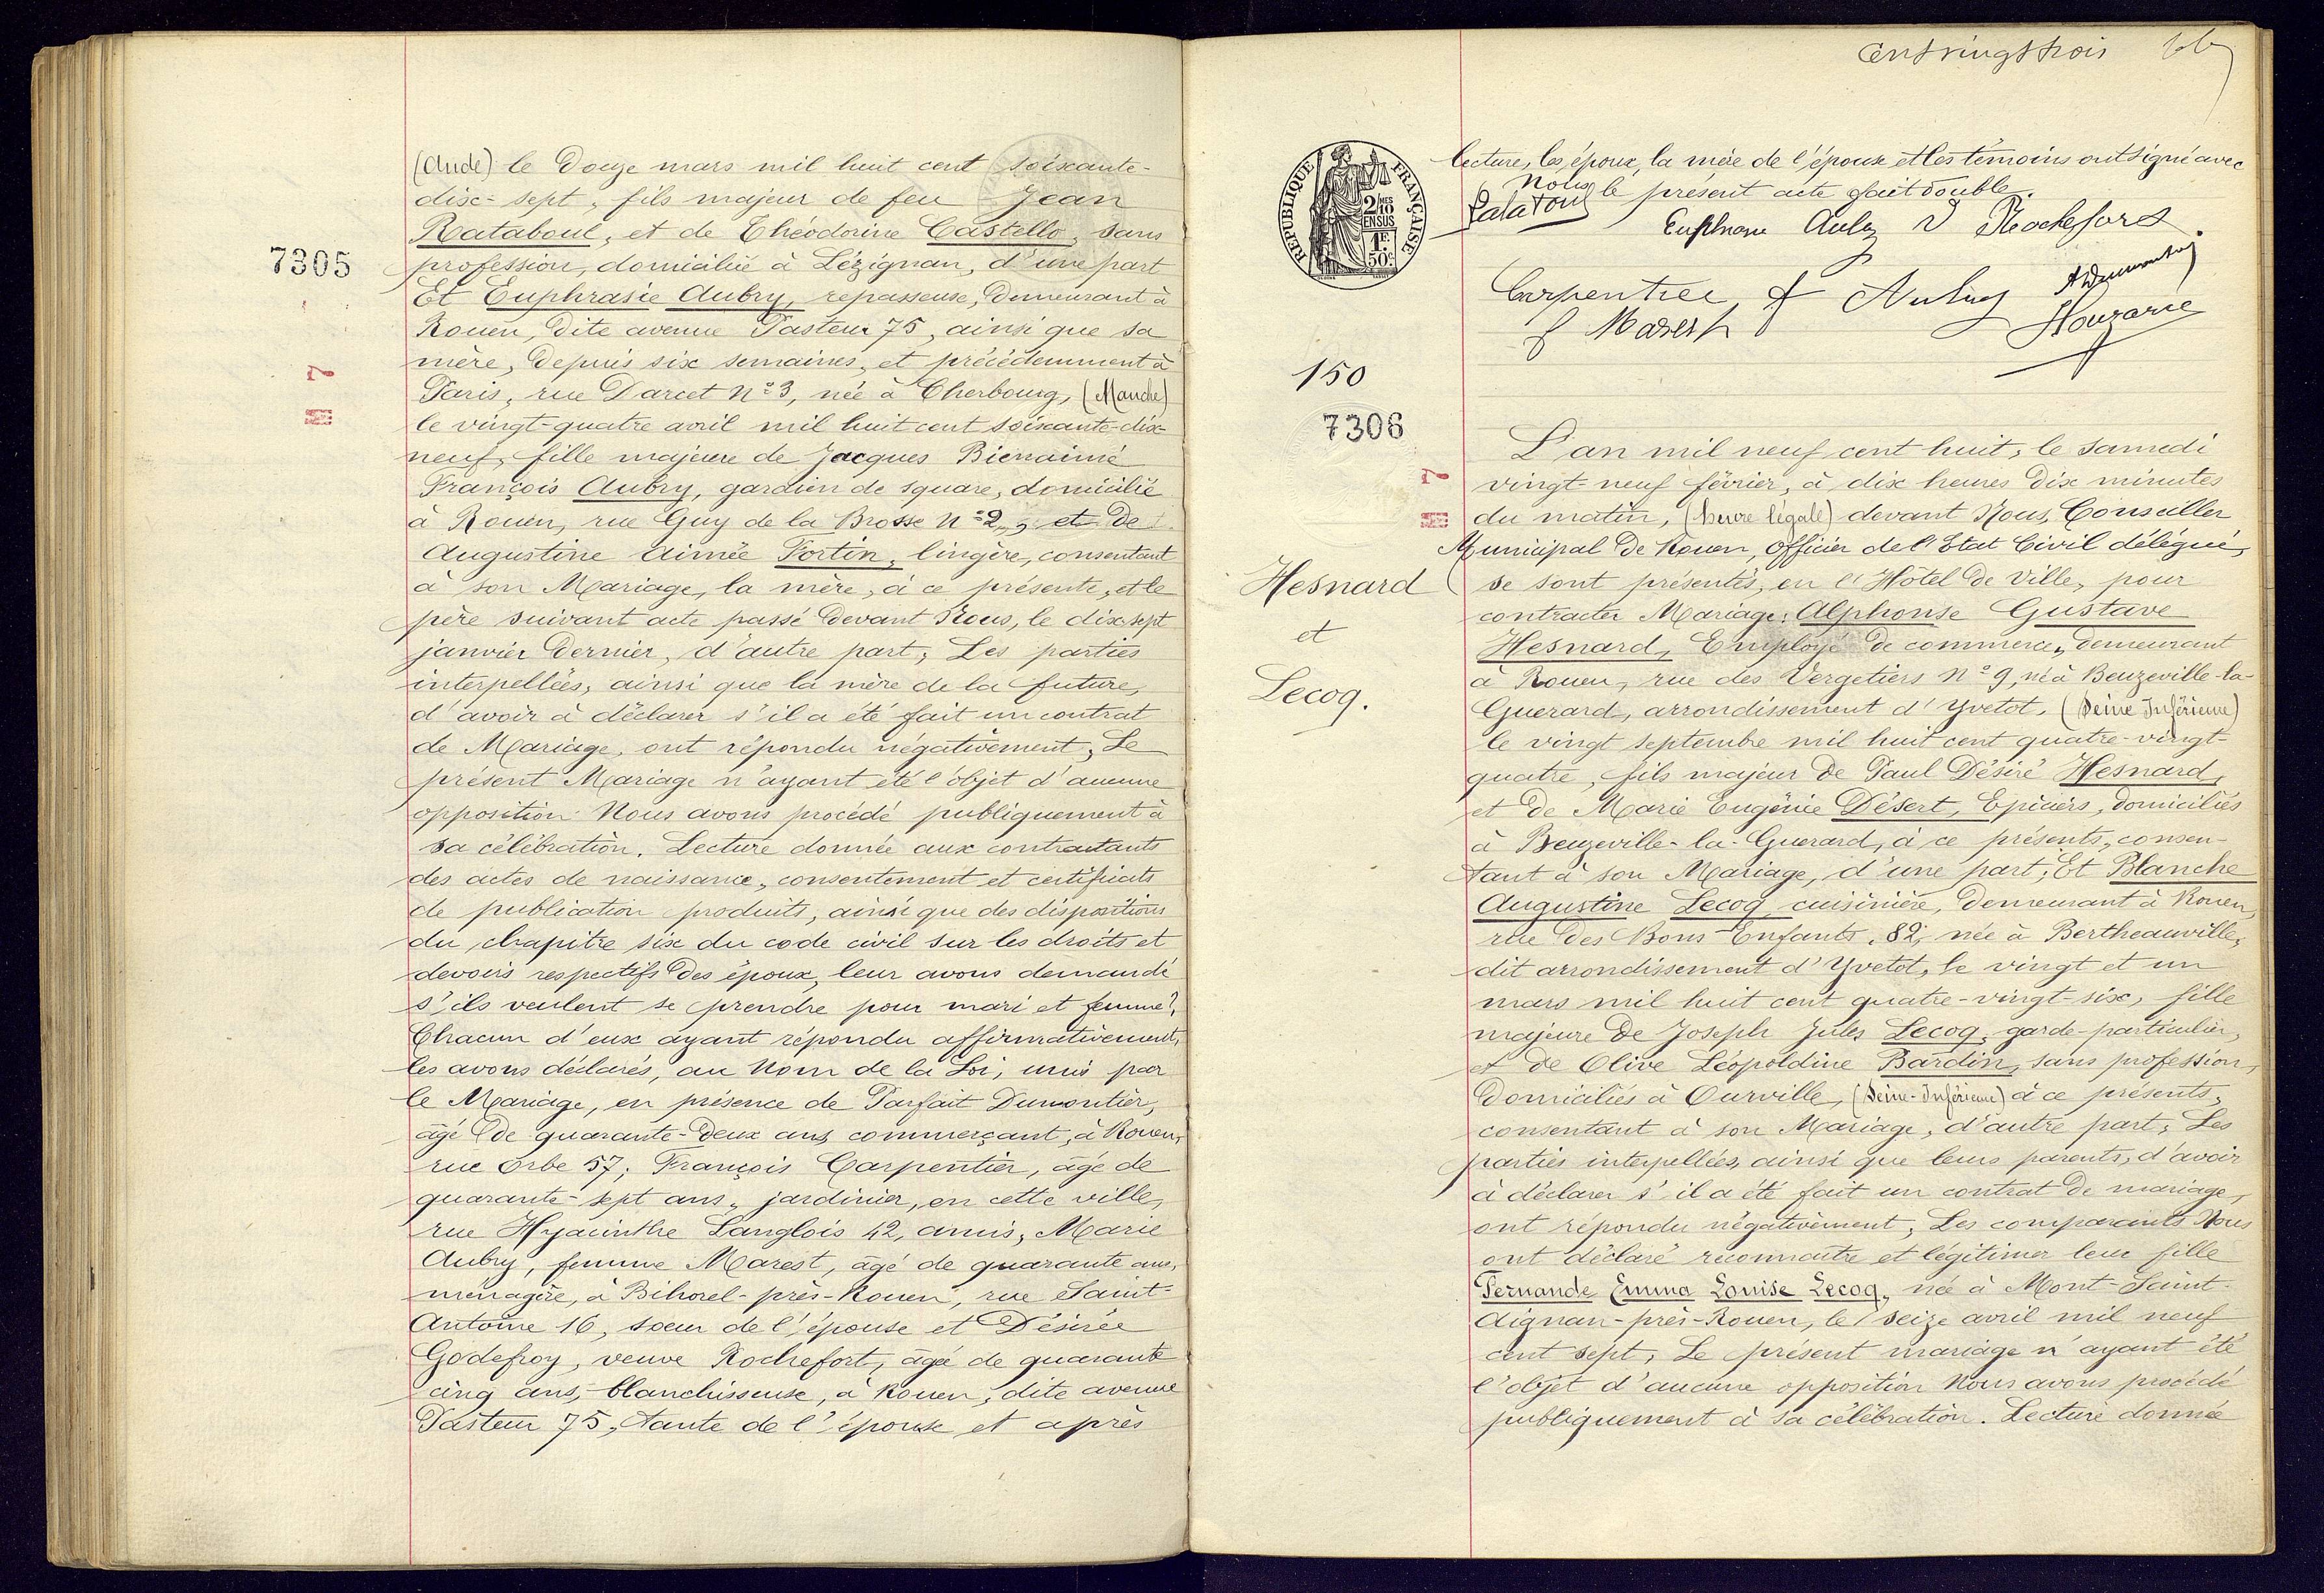 7305
(Aude) le douze mars mil huit cent soixante-
dix-sept, fils majeur de feu Jean
Rataboul, et de Théodorine Castello, sans
profession, domiciliée à Lézignan, d'une part
Et Euphrasie Aubry, repasseuse, demeurant à
Rouen, dite avenue Pasteur 75, ainsi que sa
mère, depuis six semaines, et précédemment à
Paris, rue Darcet N° 3, née à Cherbourg, (Manche)
le vingt-quatre avril mil huit cent soixante-dix-
neuf, fille majeure de Jacques Bienaimé
François Aubry, gardien de square, domicilié
à Rouen, rue Guy de la Brosse N° 2, et de
Augustine Aimée Fortin, lingère, consentant
à son Mariage, la mère, à ce présente, et le
père suivant acte passé devant Nous, le dix sept
janvier dernier, d'autre part; Les parties
interpellées, ainsi que la mère de la future,
d'avoir à déclarer s'il a été fait un contrat
de Mariage, ont répondu négativement; Le
présent Mariage n'ayant été l'objet d'aucune
opposition Nous avons procédé publiquement à
sa célébration. Lecture donnée aux contractants
des actes de naissance, consentement et certificats
de publication produits, ainsi que des dispositions
du chapitre six du code civil sur les droits et
devoirs respectifs des époux, leur avons demandé
s'ils veulent se prendre pour mari et femme?
Chacun d'eux ayant répondu affirmativement,
les avons déclarés, au Nom de la Loi, unis par
le Mariage, en présence de Parfait Dumontier,
âgé de quarante-deux ans, commerçant, à Rouen,
rue Orbe 57; François Carpentier, âgé de
quarante-sept ans, jardinier, en cette ville,
rue Hyacinthe Langlois 42, amis, Marie
Aubry, femme Marest, âgé de quarante ans,
ménagère, à Bihorel-près-Rouen, rue Saint-
Antoine 16, soeur de l'épouse et Désirée
Godefroy, veuve Rochefort, âgée de quarante
cinq ans, blanchisseuse, à Rouen, dite avenue
Pasteur 75, tante de l'épouse et après
cent vingt trois
REPUBLIQUE FRANÇAISE
2/10 EN SUS
1F 50c
lecture, les époux, la mère de l'épouse et les témoins ont signé avec
Nous le présent acte fait double.
Rataboul Euphrasie Aubry V Rochefort
Carpentier F Aubry A Dumontier
f Marest
150
7306
Hesnard
et
Lecoq.
L'an mil neuf cent huit, le samedi
vingt-neuf février, à dix heures dix minutes
du matin, (heure légale) devant Nous, Conseiller
Municipal de Rouen, Officier de l'Etat Civil délégué,
se sont présentés, en l'Hôtel de Ville, pour
contracter Mariage: Alphonse Gustave
Hesnard, Employé de commerce, demeurant
à Rouen, rue des Vergetiers N° 9, né à Beuzeville-la-
Guerard, arrondissement d'Yvetot, (Seine Inférieure)
le vingt septembre mil huit cent quatre-vingt-
quatre, fils majeur de Paul Désiré Hesnard,
et de Marie Eugénie Désert, Epiciers, domiciliés
à Beuzeville-la-Guerard, à ce présents, consen-
tant à son Mariage, d'une part; Et Blanche
Augustine Lecoq, cuisinière, demeurant à Rouen,
rue des Bons Enfants, 82, née à Bertheauville,
dit arrondissement d'Yvetot, le vingt et un
mars mil huit cent quatre-vingt-six, fille
majeure de Joseph Jules Lecoq, garde-particulier,
et de Olive Léopoldine Bardin, sans profession,
domiciliés à Ourville, (Seine-Inférieure) à ce présents,
consentant à son Mariage, d'autre part; Les
parties interpellées, ainsi que leurs parents, d'avoir
à déclarer s'il a été fait un contrat de mariage,
ont répondu négativement; Les comparants Nous
ont déclaré reconnaitre et légitimer leur fille
Fernande Emma Louise Lecoq, née à Mont-Saint-
Aignan-près-Rouen, le seize avril mil neuf
cent sept; Le présent mariage n'ayant été
l'objet d'aucune opposition Nous avons procédé
publiquement à sa célébration. Lecture donnée